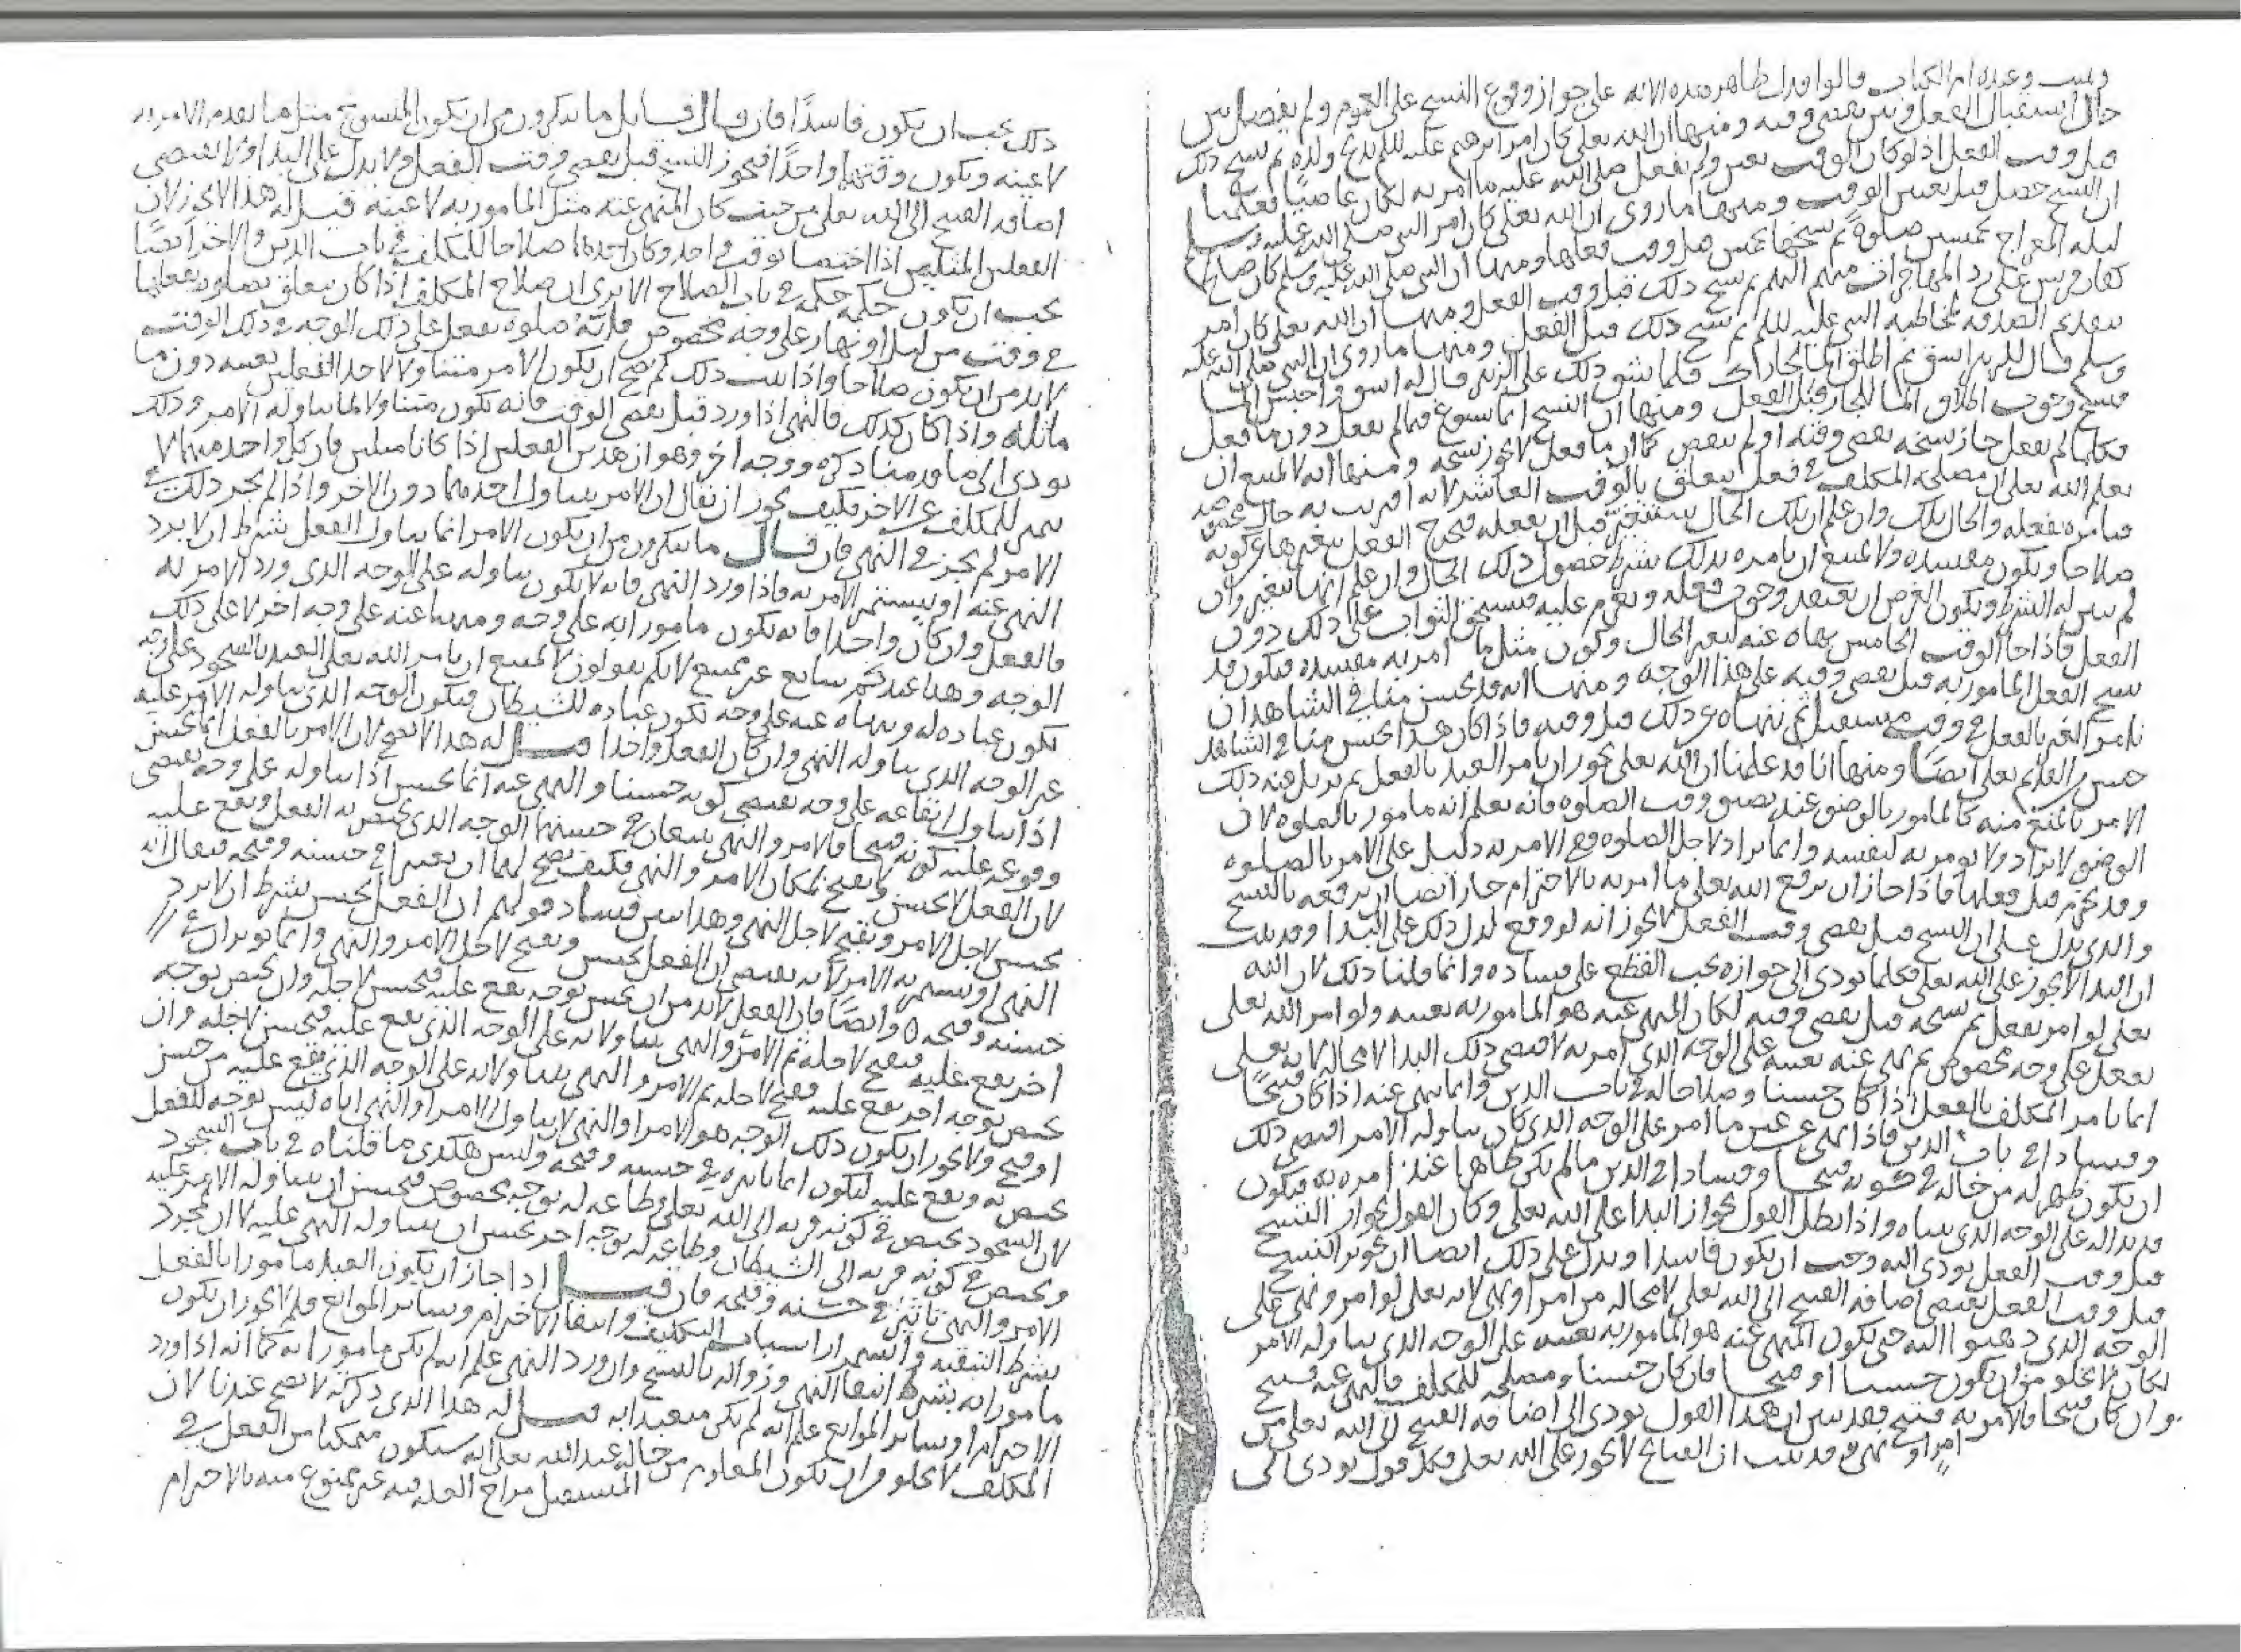 ويثبت وعنده ام الكتاب قالوا فدل ظاهر هذه الاية على جواز وقوع النسخ على العموم ولم يفصل بين
حال استقبال الفعل وبين تقضي وقته ومنها ان الله تعلى كان امر ابرهيم عليه السلم بذبح ولده ثم نسخ ذلك
قبل وقت الفعل اذ لو كان الوقت تعين ولم يفعل صلى الله عليه ما امر به لكان عاصيًا فعلمنا
ان النسخ حصل قبل تعين الوقت ومنها ما روى ان الله تعلى كان امر النبى صلى الله عليه وسلم
ليلة المعراج بخمسين صلوة ثم نسخها بخمس قبل وقت فعلها ومنها ان النبى صلى الله عليه وسلم كان صالح
كفار قريش على رد المهاجرات منهم اليهم ثم نسخ ذلك قبل وقت الفعل ومنها ان الله تعلى كان امر
بتقديم الصدقة لمخاطبة النبى عليه السلم ثم نسخ ذلك قبل الفعل ومنها ما روى ان النبى صلى الله عليه
وسلم قال للزبير اسق ثم اطلق الما لجارك فلما شق ذلك على الزبير قال له اسق واحبس الما
فنسخ وجوب اطلاق الما للجار قبل الفعل ومنها ان النسخ انما يسوغ فيما لم يفعل دون ما فعل
فكلما لم يفعل جاز نسخه تقضى وقته او لم يتقض كما ان ما فعل لا يجوز نسخه ومنها انه لا يمتنع ان
يعلم الله تعلى ان مصلحة المكلف فى فعل يتعلق بالوقت العاشر لانه اقترنت به حال
فيامره بفعله والحال تلك وان علم ان تلك الحال ستتغير قبل ان يفعله فيخرج الفعل بتغيرها عن كونه
صلاحا ويكون مفسدة ولا يمتنع ان يامره بذلك بشرط حصول ذلك الحال وان علم انها تتغير وان
لم يبين له الشرط ويكون الغرض ان يعتقد وجوب فعله ويعزم عليه فيستحق الثواب على ذلك دون
الفعل فاذا جا الوقت الخامس نهاه عنه لتغير الحال وكون مثل ما امر به مفسدة فيكون قد
نسخ الفعل المامور به قبل تقضى وقته على هذا الوجه ومنها انه قد يحسن منا فى الشاهد ان
نامر الغير بالفعل فى وقت مستقبل ثم ننهاه عن ذلك قبل وقته فاذا كان هذا يحسن منا فى الشاهد
حسن من القديم تعلى ايضًا ومنها انا قد علمنا ان الله تعلى يجوز ان يامر العبد بالفعل ثم يزيل عنه ذلك
الامر بالمنع منه كالمامور بالوضو عند تضيق وقت الصلوة فانه يعلم انه مامور بالصلوة لان
الوضو لا يراد ولا يومر به لنفسه وانما يراد لاجل الصلوة فمع الامر به دليل على الامر بالصلوة
وقد يخترم قبل فعلها فاذا جاز ان يرفع الله تعلى ما امر به بالاخترام جاز ايضا ان يرفعه بالنسخ
والذى يدل على ان النسخ قبل تقضى وقت الفعل لا يجوز انه لو وقع لدل ذلك على البدا وقد ثبت
ان البدا لا يجوز على الله تعلى فكلما يودى الى جوازه يجب القطع على فساده وانما قلنا ذلك لان الله
تعلى لو امر بفعل ثم نسخه قبل تقضى وقته لكان المنهى عنه هو المامور به بعينه ولو امر الله تعلى
بفعل على وجه مخصوص ثم نهى عنه بعينه على الوجه الذى امر به لاقتضى ذلك البدا لا محالة لانه تعلى
انما يامر المكلف بالفعل اذا كان حسنا وصلاحا له فى باب الدين وانما ينهى عنه اذا كان قبيحًا
وفسادا فى باب الدين فاذا نهى عن عين ما امر على الوجه الذى كان يتناوله الامر اقتضى ذلك
ان يكون ظهر له من حاله فى كونه قبيحا وفسادا فى الدين ما لم يكن ظاهرا عند امره به فيكون
قد بدا له على الوجه الذى بيناه واذا بطل القول بجواز البدا على الله تعلى وكان القول بجواز النسخ
قبل وقت الفعل يودى اليه وجب ان يكون فاسدا ويدل على ذلك ايضا ان تجويز النسخ
قبل وقت الفعل يقتضى اضافة القبيح الى الله تعلى لا محالة من امر او نهى لانه تعلى لو امر ونهى على
الوجه الذى ذهبوا اليه حتى يكون المنهى عنه هو المامور به بعينه على الوجه الذى يتناوله الامر
لكان لا يخلو من ان يكون حسنا او قبيحا فان كان حسنا ومصلحة للمكلف فالنهى عنه قبيح
وان كان قبيحا فالامر به قبيح فقد تبين ان هذا القول يودى الى اضافة القبيح الى الله تعلى من
امر او نهى وقد ثبت ان القبايح لا يجوز على الله تعلى فكل قول يودى الى
ذلك يجب ان يكون فاسدًا فان قال قايل ما تنكرون من ان يكون المنسوخ مثل ما تقدم الامر به
لا عينه ويكون وقتهما واحدًا فيجوز النسخ قبل تقضى وقت الفعل ولا يدل على البدا ولا يقتضى
اضافة القبيح الى الله تعلى من حيث كان المنهى عنه مثل المامور به لا عينه قيل له هذا لا يجوز لان
الفعلين المثلين اذا اختصا بوقت واحد وكان احدهما صلاحا للمكلف فى باب الدين فالاخر ايضًا
يجب ان يكون حكمه حكمه فى باب الصلاح الا ترى ان صلاح المكلف اذا كان يتعلق بصلوة يفعلها
فى وقت من ليل او نهار على وجه مخصوص فاية صلوة يفعل على ذلك الوجه فى ذلك الوقت
لا بد من ان يكون صلاحا واذا ثبت ذلك لم يصح ان يكون الامر متناولا لاحد الفعلين بعينه دون ما
ماثله واذا كان كذلك فالنهى اذا ورد قبل تقضى الوقت فانه يكون متناولا لما تناوله الامر وذلك
يودى الى ما قدمنا ذكره ووجه اخر وهو ان هذين الفعلين اذا كانا مثلين فان كل واحد منهما لا
يتميز للمكلف عن الاخر فكيف يجوز ان يقال ان الامر يتناول احدهما دون الاخر واذا لم يجز ذلك فى
الامر لم يجز فى النهى فان قال ما تنكرون من ان يكون الامر انما يتناول الفعل بشرط ان لا يرد
النهى عنه او يستمر الامر به فاذا ورد النهى فانه لا يكون يتناوله على الوجه الذى ورد الامر به
فالفعل وان كان واحدا فانه يكون مامورا به على وجه ومنهيا عنه على وجه اخر لا على ذلك
الوجه وهذا عندكم سايغ غير ممتنع لانكم تقولون لا يمتنع ان يامر الله تعلى العبد بالسجود على وجه
يكون عبادة له وينهاه عنه على وجه يكون عبادة للشيطان فيكون الوجه الذى يتناوله الامر عليه
غير الوجه الذى يتناوله النهى وان كان الفعل واحدا قيل له هذا لا يصح لان الامر بالفعل انما يحسن
اذا تناول ايقاعه على وجه يقتضى كونه حسنا والنهى عنه انما يحسن اذا تناوله على وجه يقتضى
وقوعه عليه كونه قبيحا فالامر والنهى يتبعان فى حسنهما الوجه الذى يختص به الفعل ويقع عليه
لان الفعل لا يحسن ولا يقبح لمكان الامر والنهى فكيف يصح لهما ان يعتبرا فى حسنه وقبحه فيقال انه
يحسن لاجل الامر ويقبح لاجل النهى وهذا يبين فساد قولهم ان الفعل يحسن بشرط ان لا يرد
النهى او يستمر به الامر لانه يقتضى ان الفعل يحسن ويقبح لاجل الامر والنهى وانما يوثران فى
حسنه وقبحه وايضًا فان الفعل لا بد من ان يختص بوجه يقع عليه فيحسن لاجله وان يختص بوجه
اخر يقع عليه فيقبح لاجله ثم الامر والنهى يتناولانه على الوجه الذى يقع عليه فيحسن لاجله وان
يختص بوجه اخر يقع عليه فيقبح لاجله ثم الامر والنهى يتناولانه على الوجه الذى يقع عليه من حسن
او قبح ولا يجوز ان يكون ذلك الوجه هو الامر او النهى لا يتناول الامر او النهى اياه ليس بوجه للفعل
يختص به ويقع عليه ليكون انما تاثيره فى حسنه وقبحه وليس هكذى ما قلناه فى باب السجود
لان السجود يختص فى كونه قربة الى الله تعلى وطاعة له بوجه مخصوص فيحسن ان يتناوله الامر عليه
ويختص فى كونه قربة الى الشيطان وطاعة له بوجه اخر يحسن ان يتناوله النهى عليه لا ان لمجرد
الامر والنهى تاثير فى حسنه وقبحه فان قيل اذا جاز ان يكون العبد مامورا بالفعل
بشرط التبقية واستمرار اسباب التكليف وانتفا الاخترام وساير الموانع فلم لا يجوز ان يكون
مامورا به بشرط انتفا النهى وزواله بالنسخ وان ورد النهى علم انه لم يكن مامورا به كما انه اذا ورد
الاخترام او ساير الموانع علم انه لم يكن متعبدا به قيل له هذا الذى ذكرته لا يصح عندنا لان
المكلف لا يخلو من ان يكون المعلوم من حاله عند الله تعلى انه سيكون متمكنا من الفعل فى
المستقبل مزاح العلة فيه غير ممنوع منه بالاخترام